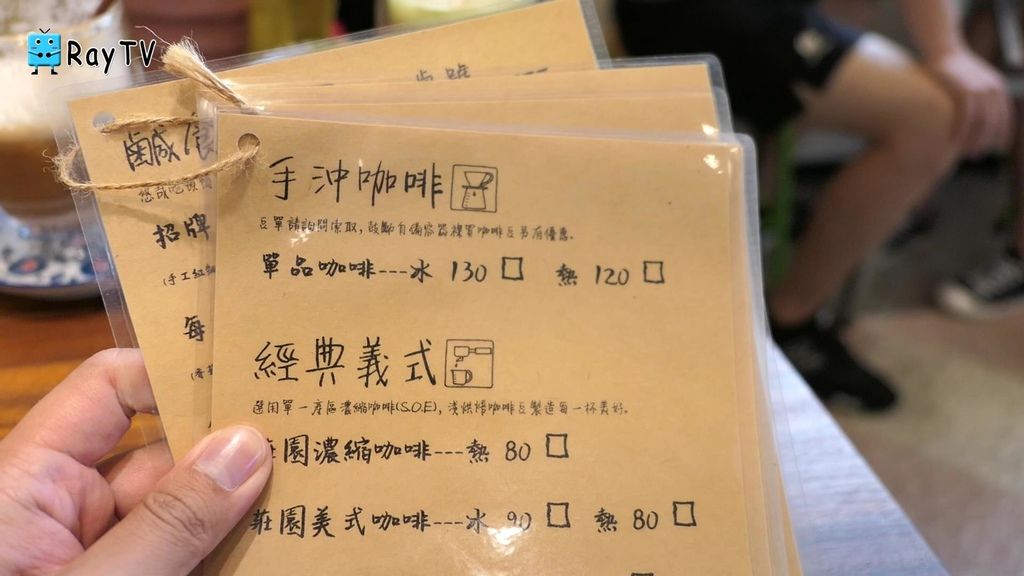 RayTV
鹹
招牌
(手工紅
每
手沖咖啡
豆單請詢問索取, 鼓勵自備容器裸買咖啡豆另有優惠.
單品咖啡---冰 130 □ 熱 120 □
經典義式
選用單一產區濃縮咖啡(S.O.E), 淺烘焙咖啡豆製造每一杯美好.
莊園濃縮咖啡---熱 80 □
莊園美式咖啡---冰 90 □ 熱 80 □